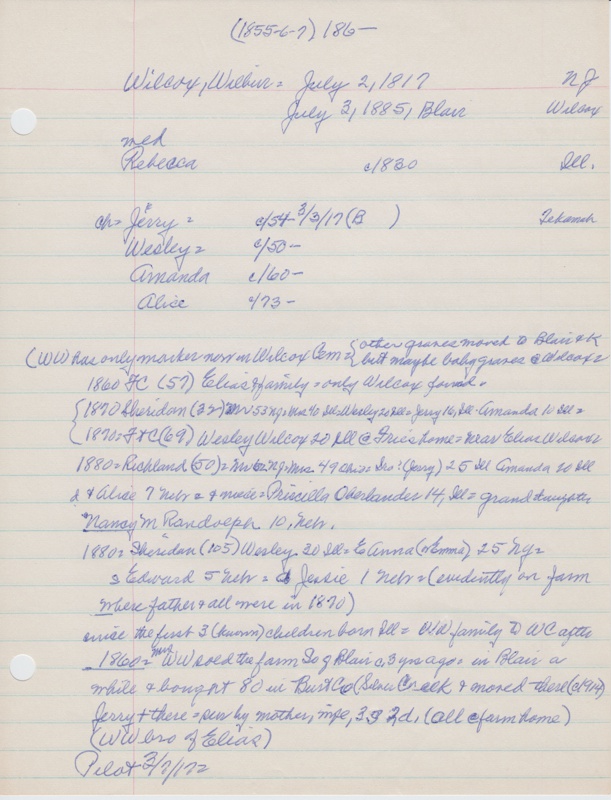 (1855-6-7) 186-
Wilcox, Wilbur = July 2, 1817 NJ
July 3, 1885, Blair Wilcox
med
Rebecca c/1830 Ill.
ch = Jerry = c/54 3/3/17 (B ) Tekamah
Wesley = c/50-
Amanda c/60-
Alice c/73-
(WW has only marker now in Wilcox Cem = {other graves moved to Blair & K
but maybe baby graves @ Wilcox =
1860 FC (57) Elias & family = only Wilcox found.
{1870 Sheridan (32) 53 NJ = Mrs 40 Ill = Wesley 20 Ill = Jerry 16, Ill - Amanda 10 Ill =
1870 = FtC (69) Wesley Wilcox 20 Ill @ home = near Elias Wilcox =
1880 = Richland (50) = NJ = Mrs 49 = (Jerry) 25 Ill Amanda 20 Ill
d & Alice 7 Nebr = & niece = Priscilla Oberlander 14, Ill = granddaughter
Nancy M Randolph 10, Nebr.
1880 = Sheridan (105) Wesley 30 Ill = E Anna (or Emma) 25 NY =
s Edward 5 Nebr = d Jessie 1 Nebr = (evidently on farm
where father & all were in 1870)
since the first 3 (known) children born Ill = WW family to WC after
1860 = Mrs WW sold the farm So of Blair c 3 yrs ago = in Blair a
while & bought 80 in Burt Co (Silver Creek & moved there (c/1914)
Jerry & there = sur by mother, wife, 3 s 2 d. (all @ farm home)
(WW bro of Elias)
Pilot 3/7/17=